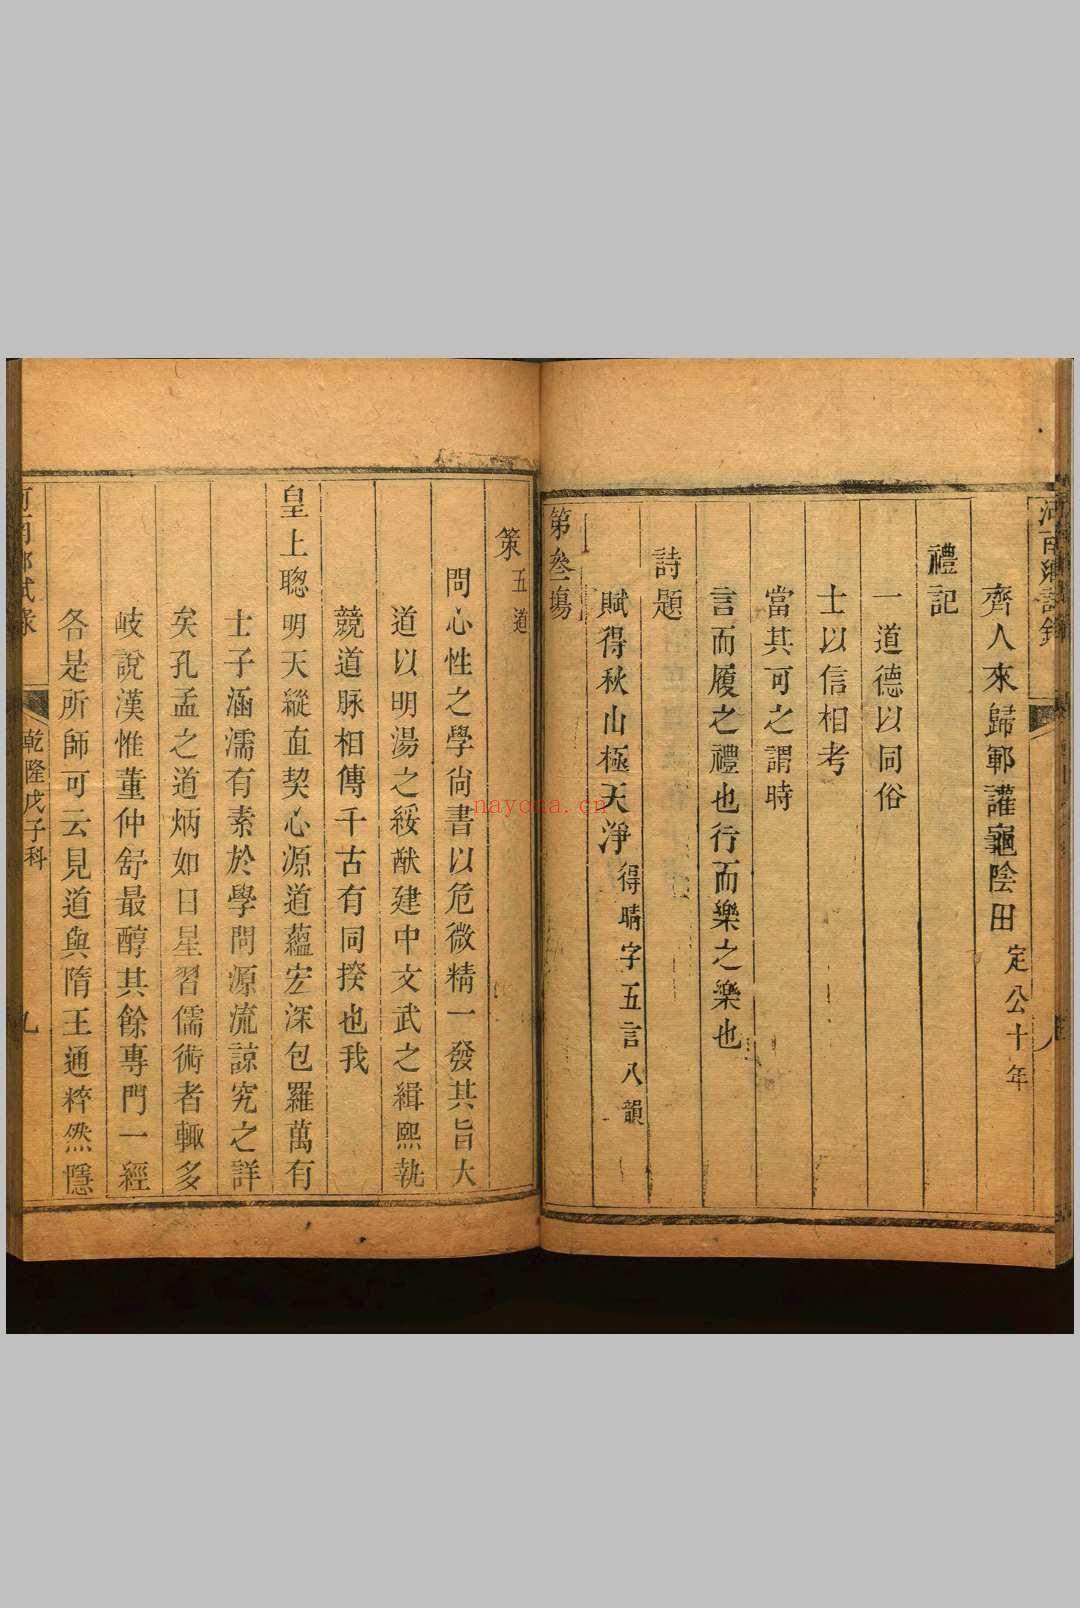 河南鄉試錄
齊人來歸鄆讙龜陰田 定公十年
禮記
一道德以同俗
士以信相考
當其可之謂時
言而履之禮也行而樂之樂也
詩題
賦得秋山極天淨 得晴字五言八韻
第叄塲
策五道
問心性之學尙書以危微精一發其旨大
道以明湯之綏猷建中文武之緝熙執
競道脉相傳千古有同揆也我
皇上聰明天縱直契心源道蘊宏深包羅萬有
士子涵濡有素於學問源流諒究之詳
矣孔孟之道炳如日星習儒術者輙多
岐說漢惟董仲舒最醇其餘專門一經
各是所師可云見道與隋王通粹然隱
河南鄉試錄
乾隆戊子科
九
nayoga.cn